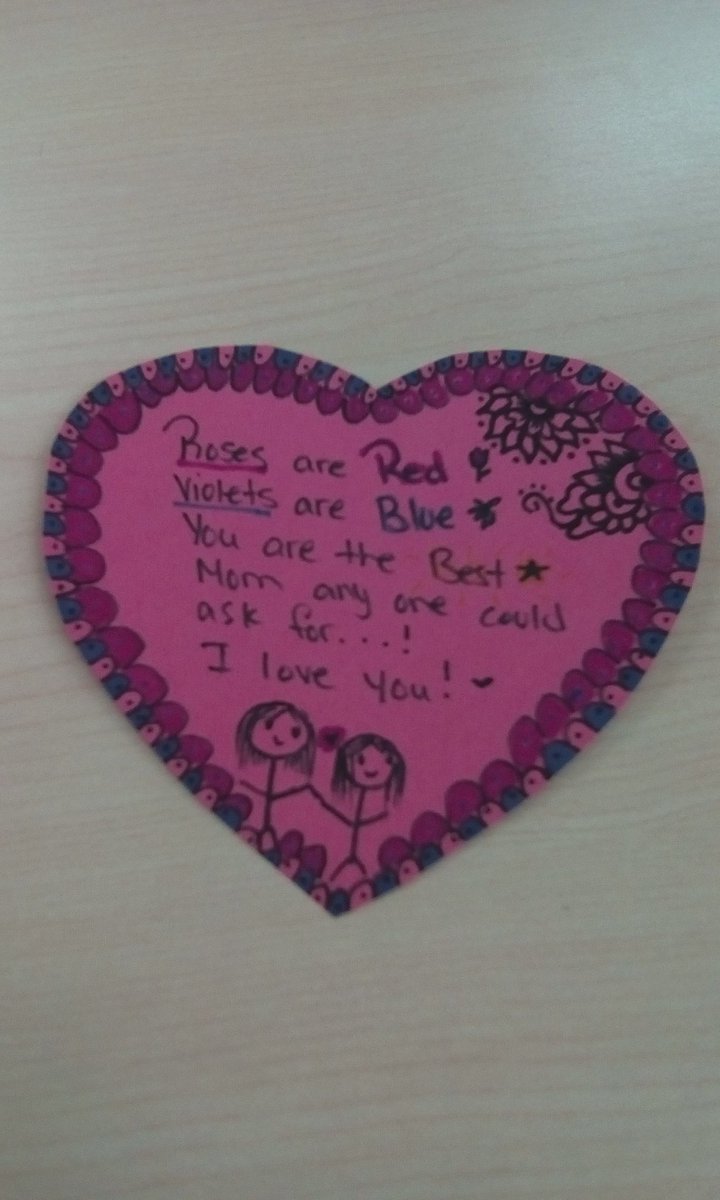 Roses are Red
Violets are Blue
You are the Best
Mom any one could
ask for...!
I love you!